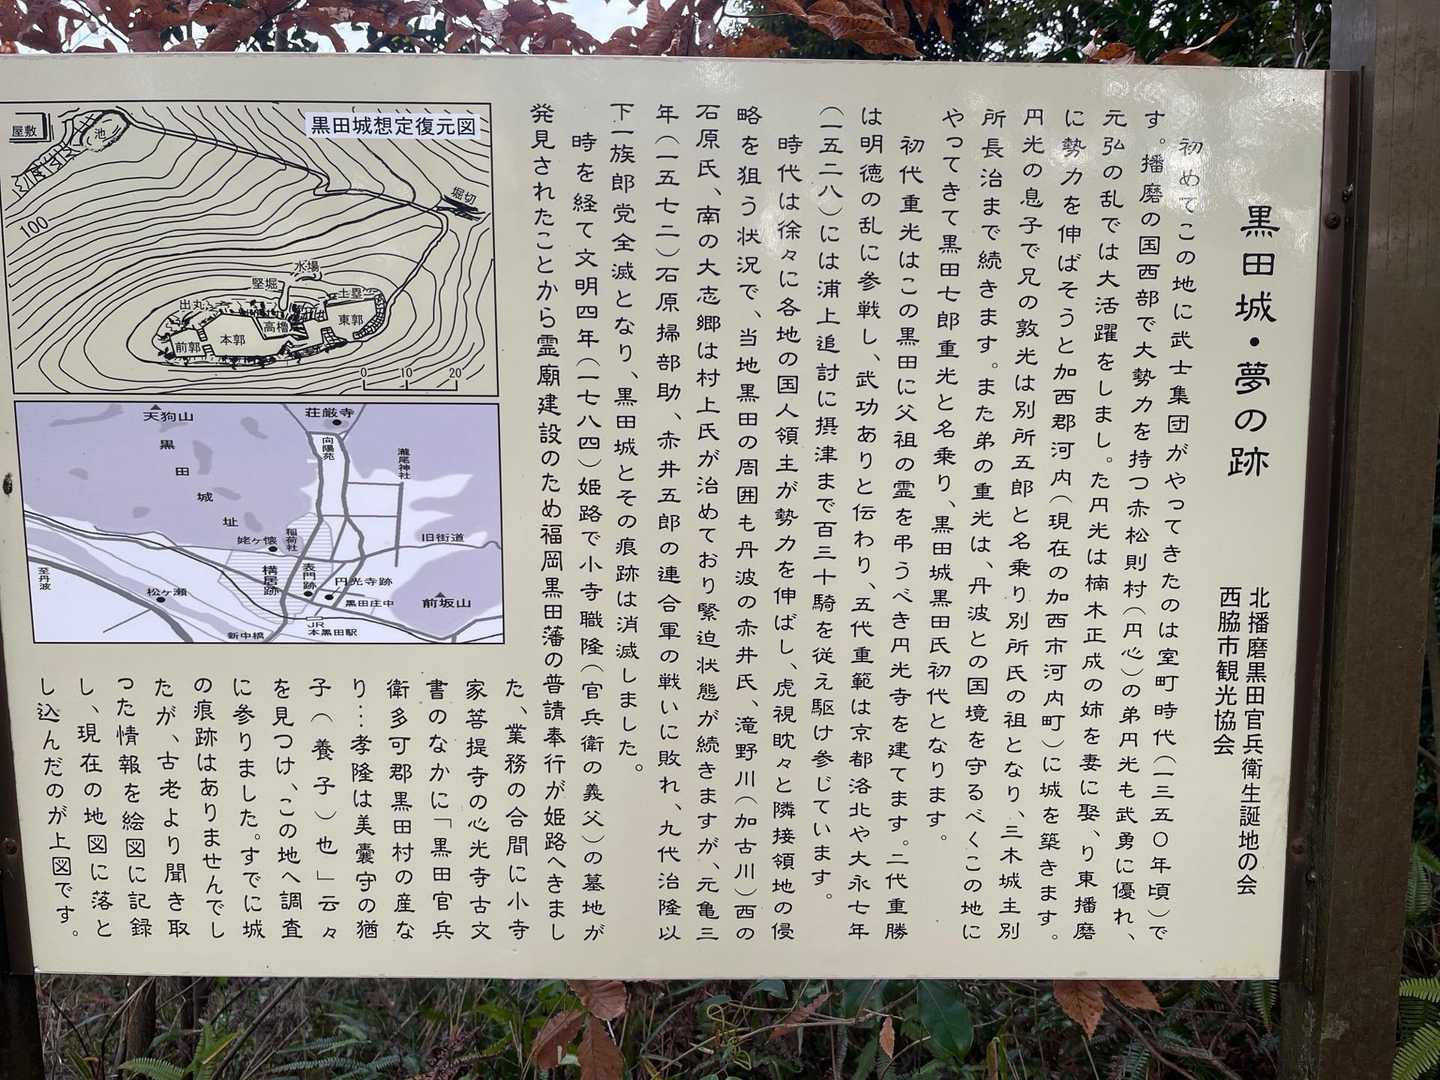 黒田城・夢の跡
北播磨黒田官兵衛生誕地の会
西脇市観光協会
初めてこの地に武士集団がやってきたのは室町時代（一三五〇年頃）で
す。播磨の国西部で大勢力を持つ赤松則村（円心）の弟円光も武勇に優れ、
元弘の乱では大活躍をしました。円光は楠木正成の姉を妻に娶、り東播磨
に勢力を伸ばそうと加西郡河内（現在の加西市河内町）に城を築きます。
円光の息子で兄の敦光は別所五郎と名乗り別所氏の祖となり、三木城主別
所長治まで続きます。また弟の重光は、丹波との国境を守るべくこの地に
やってきて黒田七郎重光と名乗り、黒田城黒田氏初代となります。
初代重光はこの黒田に父祖の霊を弔うべき円光寺を建てます。二代重勝
は明徳の乱に参戦し、武功ありと伝わり、五代重範は京都洛北や大永七年
（一五二八）には浦上追討に摂津まで百三十騎を従え駆け参じています。
時代は徐々に各地の国人領主が勢力を伸ばし、虎視眈々と隣接領地の侵
略を狙う状況で、当地黒田の周囲も丹波の赤井氏、滝野川（加古川）西の
石原氏、南の大志郷は村上氏が治めており緊迫状態が続きますが、元亀三
年（一五七二）石原掃部助、赤井五郎の連合軍の戦いに敗れ、九代治隆以
下一族郎党全滅となり、黒田城とその痕跡は消滅しました。
時を経て文明四年（一七八四）姫路で小寺職隆（官兵衛の義父）の墓地が
発見されたことから霊廟建設のため福岡黒田藩の普請奉行が姫路へきまし
た、業務の合間に小寺
家菩提寺の心光寺古文
書のなかに「黒田官兵
衛多可郡黒田村の産な
り…孝隆は美嚢守の猶
子（養子）也」云々
を見つけ、この地へ調査
に参りました。すでに城
の痕跡はありませんでし
たが、古老より聞き取
った情報を絵図に記録
し、現在の地図に落と
し込んだのが上図です。
黒田城想定復元図
屋敷
池
堀切
100
水場
竪堀
土塁
出丸
高櫓
東郭
本郭
前郭
0 10 20
天狗山
荘厳寺
向陽苑
瀧尾神社
黒田城址
稲荷社
姥ヶ懐
旧街道
横居跡
表門跡
円光寺跡
至丹波
松ヶ瀬
黒田庄中
前坂山
新中橋
JR
本黒田駅